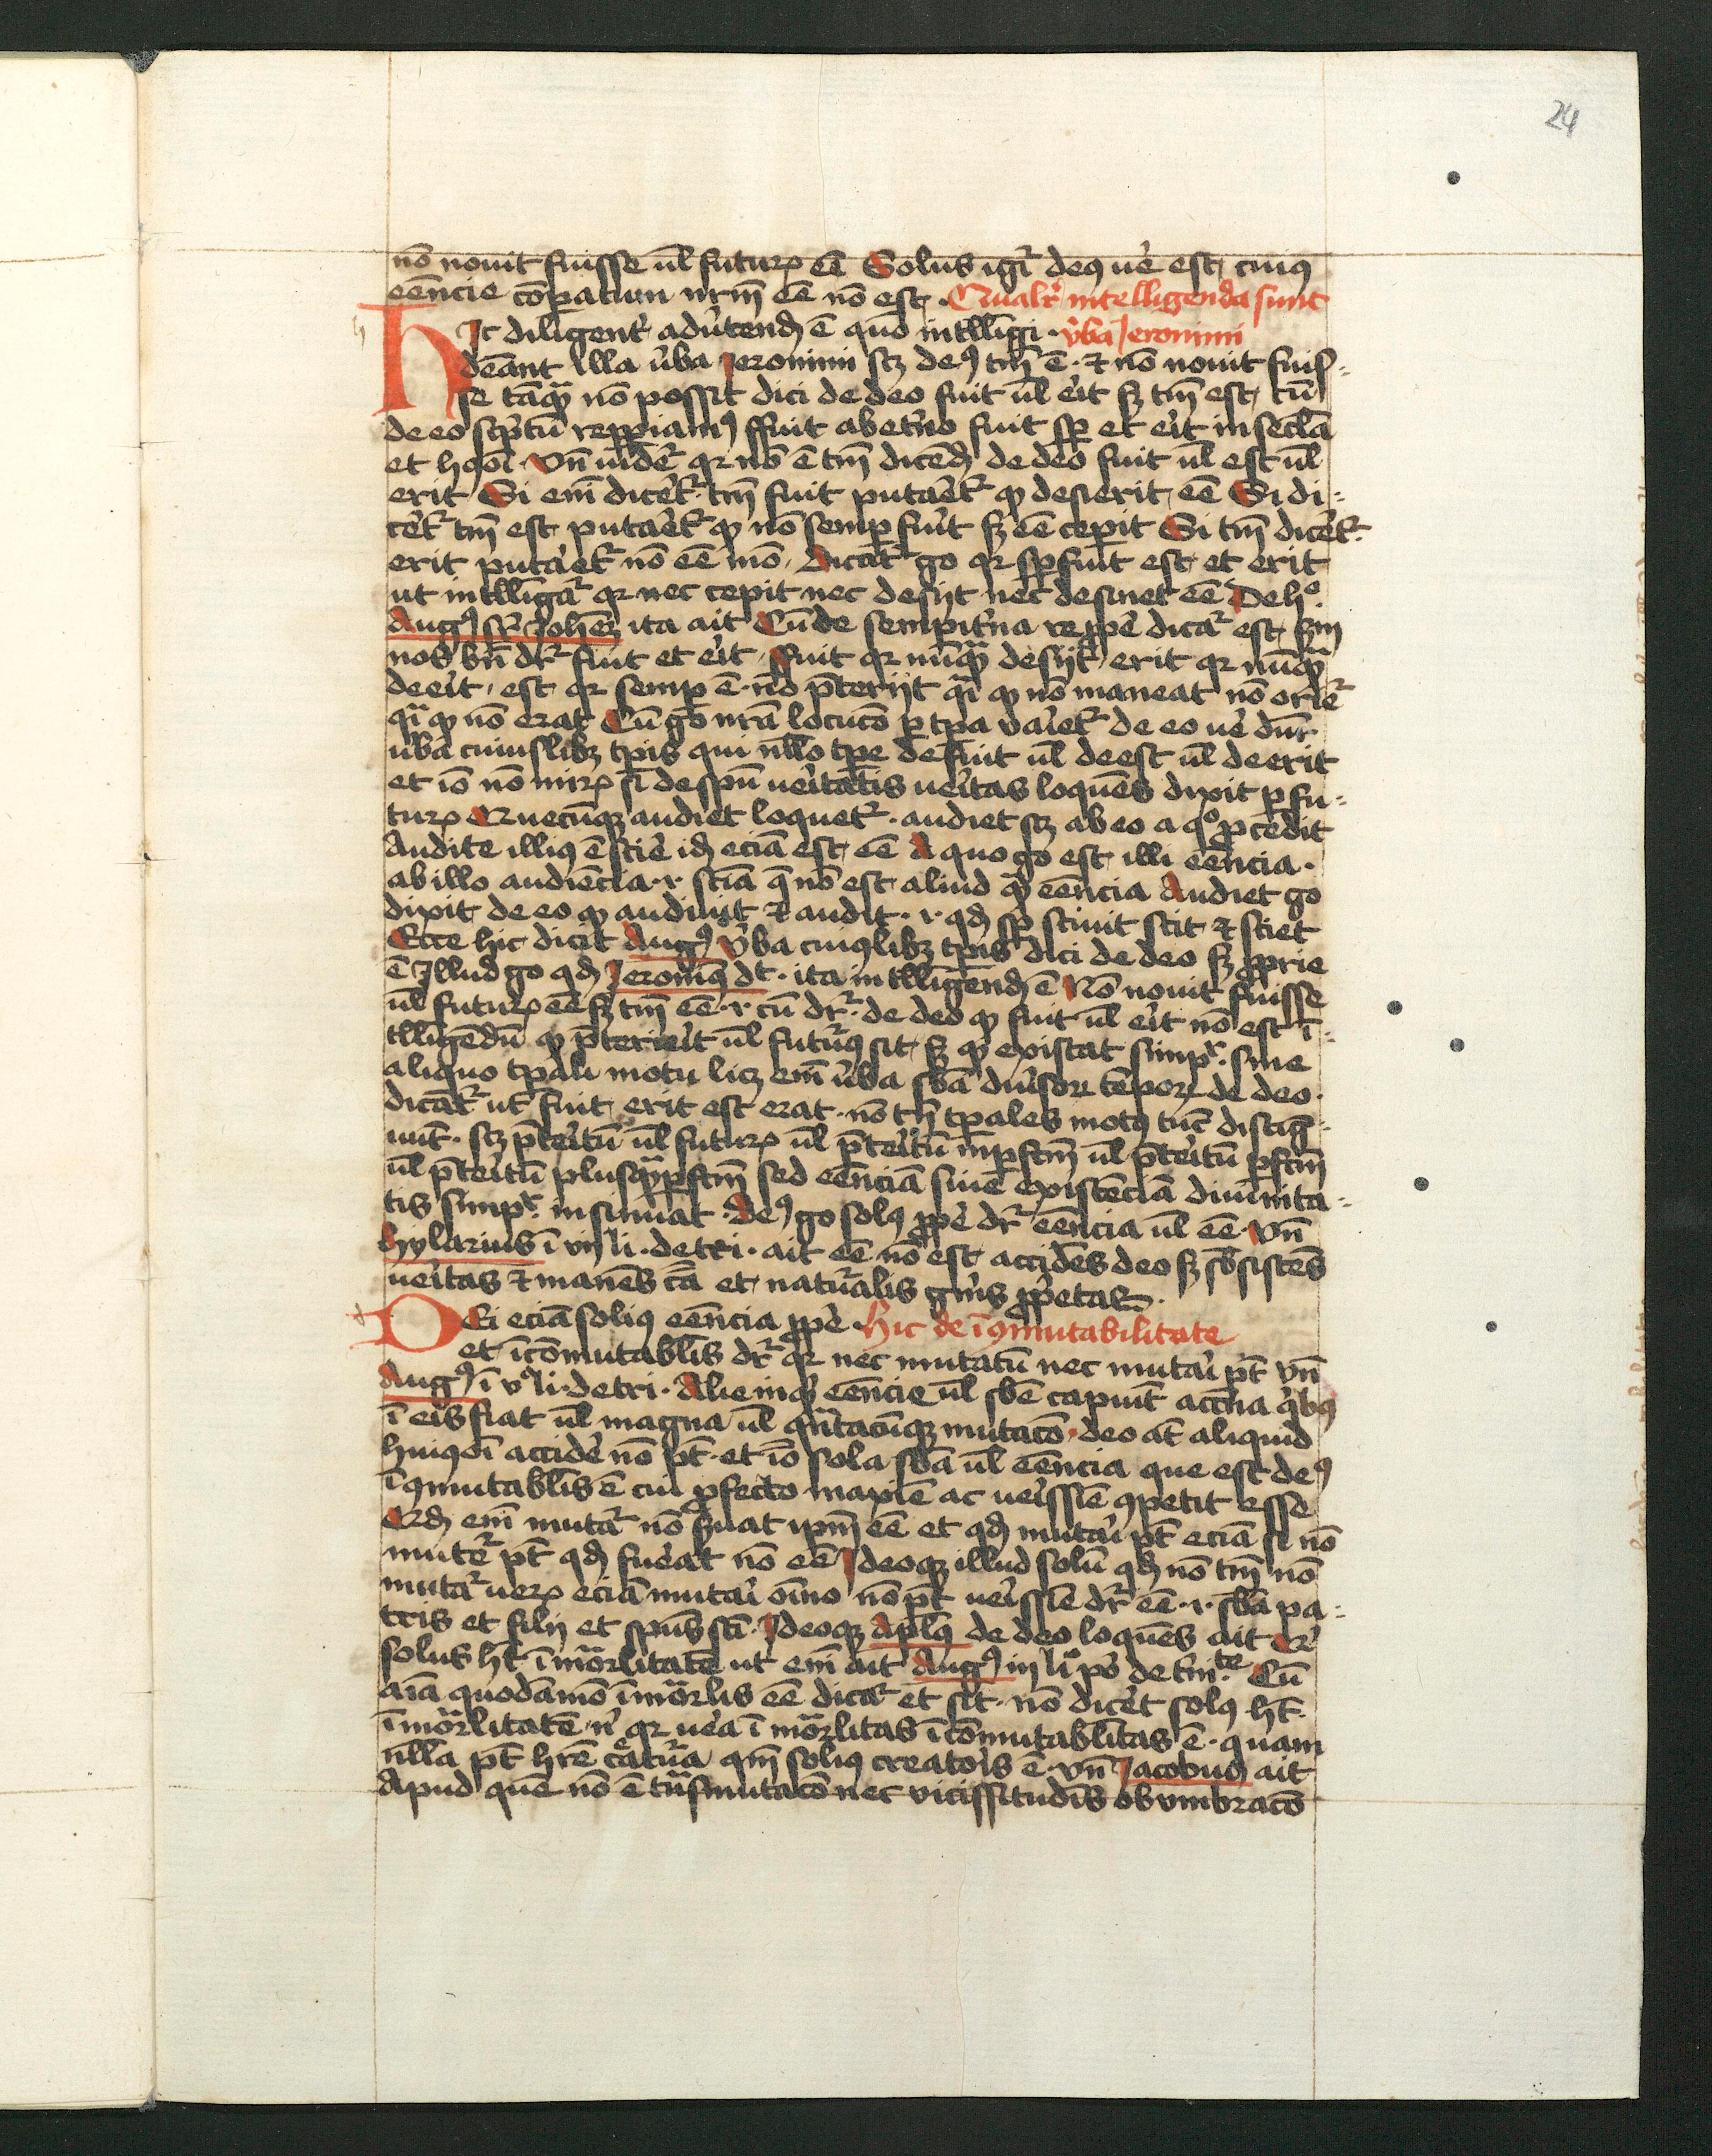 24
nō nouit fuisse ūl futuꝝ eē Solus igit̄ deꝰ ue̓ est cuiꝰ
eēncie cōpatum nr̄m eē nō est. Qualr̓ intelligenda sunt
Hic diligent̓ adu̓tend̄ ē quo intlligi. v̓ba Jeronimi
deāant illa u̓ba Jeronimi scꝫ deꝰ tm̄ ē. ⁊ nō nouit fuis-
se tāqꝫ nō possit dici de deo fuit ūl eit sꝫ tm̄ est, cū
de eo scptū reꝑiamꝰ fuit ab et̓no fuit sꝑ et eit in secl̄a
et hꝰōi. vn̄ uidet̓ qꝛ nō ē tm̄ dicēd̄ de deo fuit ūl est ūl
erit Si em̄ dicet̓ tm̄ fuit putaet̓ ꝙ desierit eē Si di-
cet̓ tm̄ est putaet̓ ꝙ nō semꝑ fuit sꝫ eē cepit Si tm̄ dicet̓
erit putaet̓ nō eē mō, dicat̓ go qꝛ sꝑ fuit est et erit
ut intlligat̓ qꝛ nec cepit nec desijt nec desinet eē De hͦ
Augꝰ sr̄ Johēꝫ ita ait Cū de sempit̓na re ꝓpe̓ dicat̓ est, scꝫm
nos bn̄ dr̓ fuit et eit, fuit qꝛ nūqꝫ desijt, erit qꝛ nūqꝫ
deeit, est qꝛ semꝑ ē. nō p̄terijt qi ꝙ nō maneat nō oriet̓
qi ꝙ nō erat Cū go nr̄a locuco ꝑ tpa vaiet̓ de eo ue̓ dn̄r
u̓ba cuiuslibꝫ tpis qui nllo tpe defuit ūl deest ūl deerit
et iō nō miꝝ si de spū ueitatis ueitas loquēs dixit ꝑ fu-
tuꝝ Quecūqꝫ audiet loquet̓. audiet scꝫ ab eo a qͦ ꝓcedit
Audire illiꝰ ē scire id̄ eciā est, eē A quo go est illi eēncia.
ab illo audiēcia .i. scīa q̄ nō est aliud qꝫ eēncia Audiet go
dixit de eo ꝙ audiuit ⁊ audit .i. qd̄ sꝑ sciuit scit ⁊ sciet
Ecce hic dicit Augꝰ v̓ba cuiꝰlibꝫ tpis dici de deo sꝫ ꝓprie
ē Illud go qd̄ Jeronimꝰ dt. ita intlligend̄ ē Nō nouit fuisse
ūl futuꝝ eē sꝫ tm̄ eē .i. cū dr̓ de deo ꝙ fuit ūl eit nō est ī-
tlligēdū ꝙ p̄terieit ūl futuꝰ sit, sꝫ ꝙ existat simpꝉ. sine
aliquo tpali motu licꝫ em̄ u̓ba sba diu̓soꝝ tēpoꝝ de deo.
dicāt̓ ut fuit erit est erat. nō tn̄ tpales motꝰ tūc distīg-
uūt. scꝫ p̄teitū ūl futuꝝ ūl p̄teitū inꝑfcm̄ ūl p̄teitū ꝑfcm̄
ūl p̄teitū plusqꝫꝑfcm̄ sed eēnciā siue existēciā diuinita-
tis simpꝉ. insinuat. deꝰ go solꝰ ꝓpe̓ dr̓ eēncia ūl eē. vn̄
hylarius ī vij li. de tri. ait eē nō est accidēs deo sꝫ sbsistēs
ueitas ⁊ manēs cā et natu̓alis gn̓is ꝓpetas.
Dei eciā soliꝰ eēncia ꝓpe̓. Hic de īꝯmutabilitate
et īcōmutabl̄is dr̓ qꝛ nec mutatu nec mutai pt̄ vn̄
Augꝰ ī vͦ li. de tri. Alie inqꝫ eēncie ūl sbē capiūt accn̄a qͥbꝰ
ī eis fiat ūl magna ūl qn̄tacūqꝫ mutaco. deo at̄ aliquid
huiꝰōi accide̓ nō pt̄. et iō sola sba ūl eēncia que est deꝰ
īꝯmutabl̄is ē cui ꝓfecto maxīe ac ueissīe ꝯpetit esse
Qd̄ em̄ mutat̓ nō ser̓uat ipm̄ eē et qd̄ mutai pt̄ eciā si nō
mutet̓ pt̄ qd̄ fueat nō eē Ideoqꝫ illud solū qd̄ nō tm̄ nō
mutat̓ ueꝝ eciā mutai oīno nō pt̄ ueissīe dr̓ eē .i. sba pa-
tris et filij et spūs sci. Ideoqꝫ Aplꝰ de deo loquēs ait Qͥ
solus ht̄ īmor̄litatē ut em̄ ait Augꝰ in li pͦ de tn̄i.te Cū
aīa quodāmō īmor̄lis eē dicat̓ et sit. nō dicet solꝰ ht̄
īmor̄litatē, nͥ qꝛ uea īmor̄litas īcōmutablitas ē. quam
nlla pt̄ hr̄e cͣatu̓a qm̄ soliꝰ creatois ē. vn̄ Jacobus ait
Apud quē nō ē tn̄smutaco nec vicissitudīs obumbraco